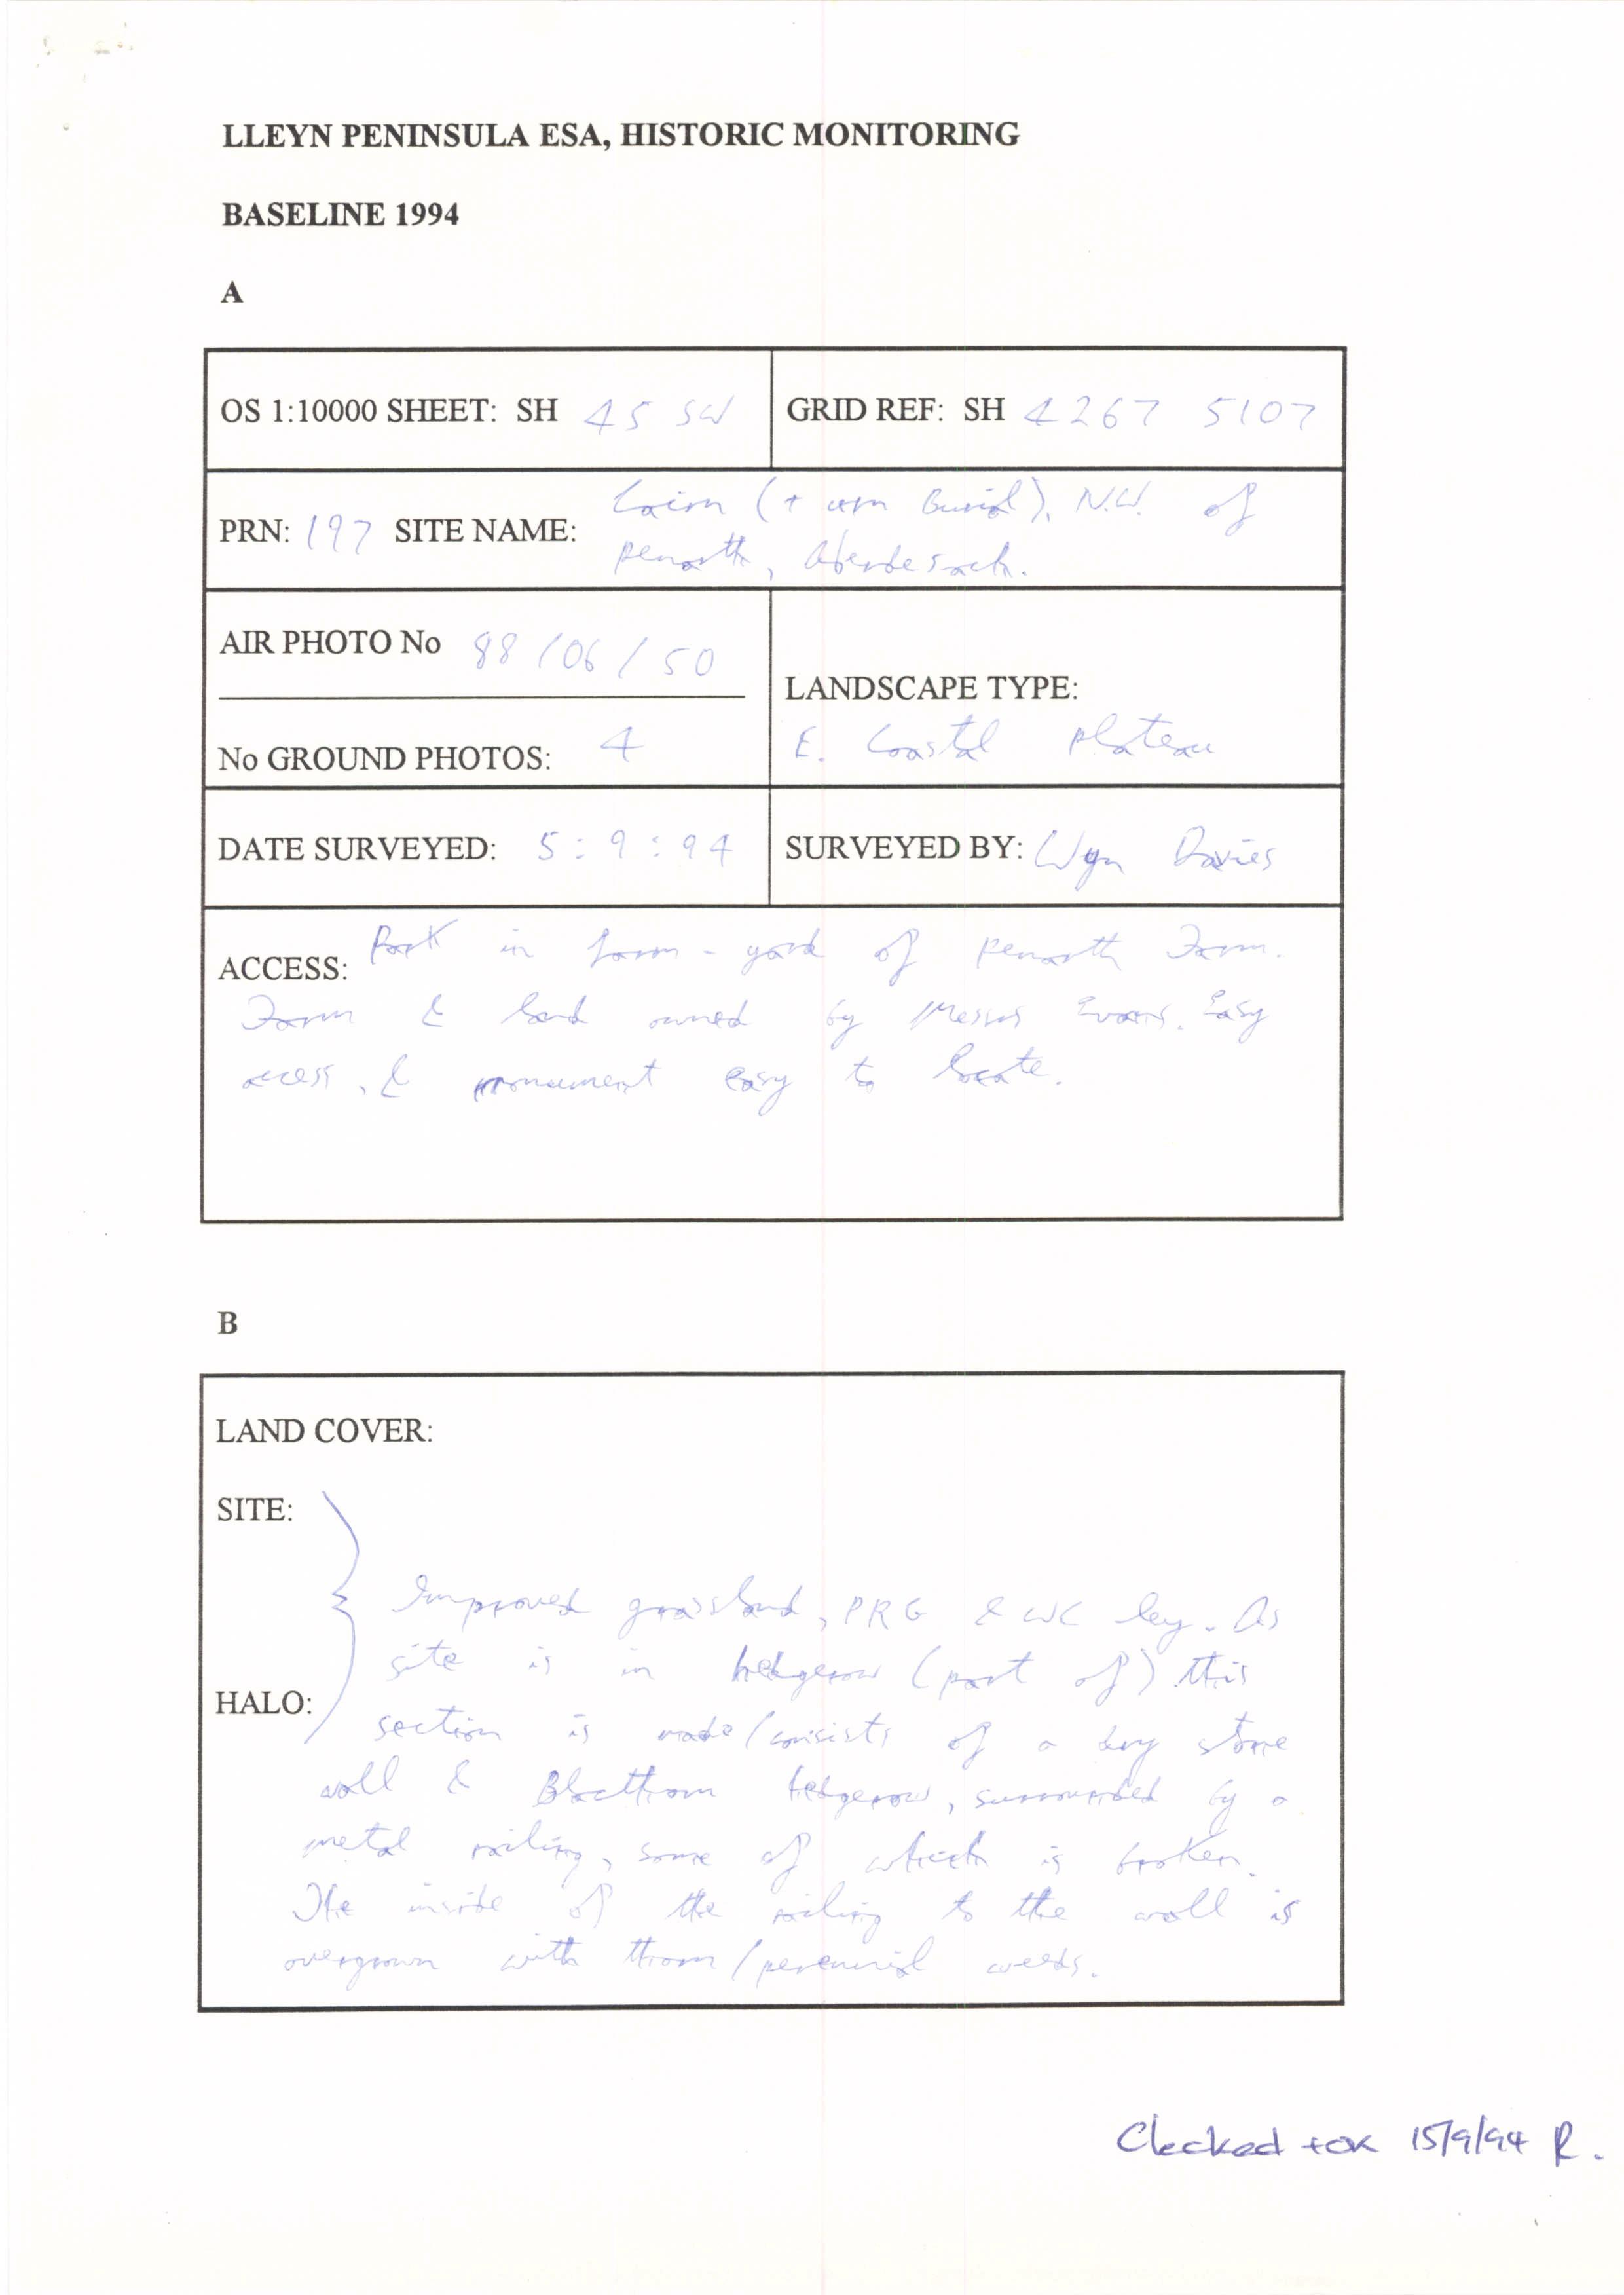 LLEYN PENINSULA ESA, HISTORIC MONITORING
BASELINE 1994
A
OS 1:10000 SHEET: SH 45 SW
GRID REF: SH 4267 5107
PRN: 197 SITE NAME: Cairn (+ urn Burial), N.W. of
Penarth, Aberdesach.
AIR PHOTO No 88/06/50
No GROUND PHOTOS: 4
LANDSCAPE TYPE:
E. Coastal plateau
DATE SURVEYED: 5:9:94
SURVEYED BY: Wyn Davies
ACCESS: Park in farm-yard of Penarth Farm.
Farm & land owned by Messrs Evans. Easy
access, & monument easy to locate.
B
LAND COVER:
SITE:
HALO:
Improved grassland, PRG & WC ley. As
site is in hedgerow (part of) this
section is made/consists of a dry stone
wall & Blackthorn hedgerow, surrounded by a
metal railing, some of which is broken.
The inside of the railing to the wall is
overgrown with thorn/perennial weeds.
Checked + OK 15/9/94 R.